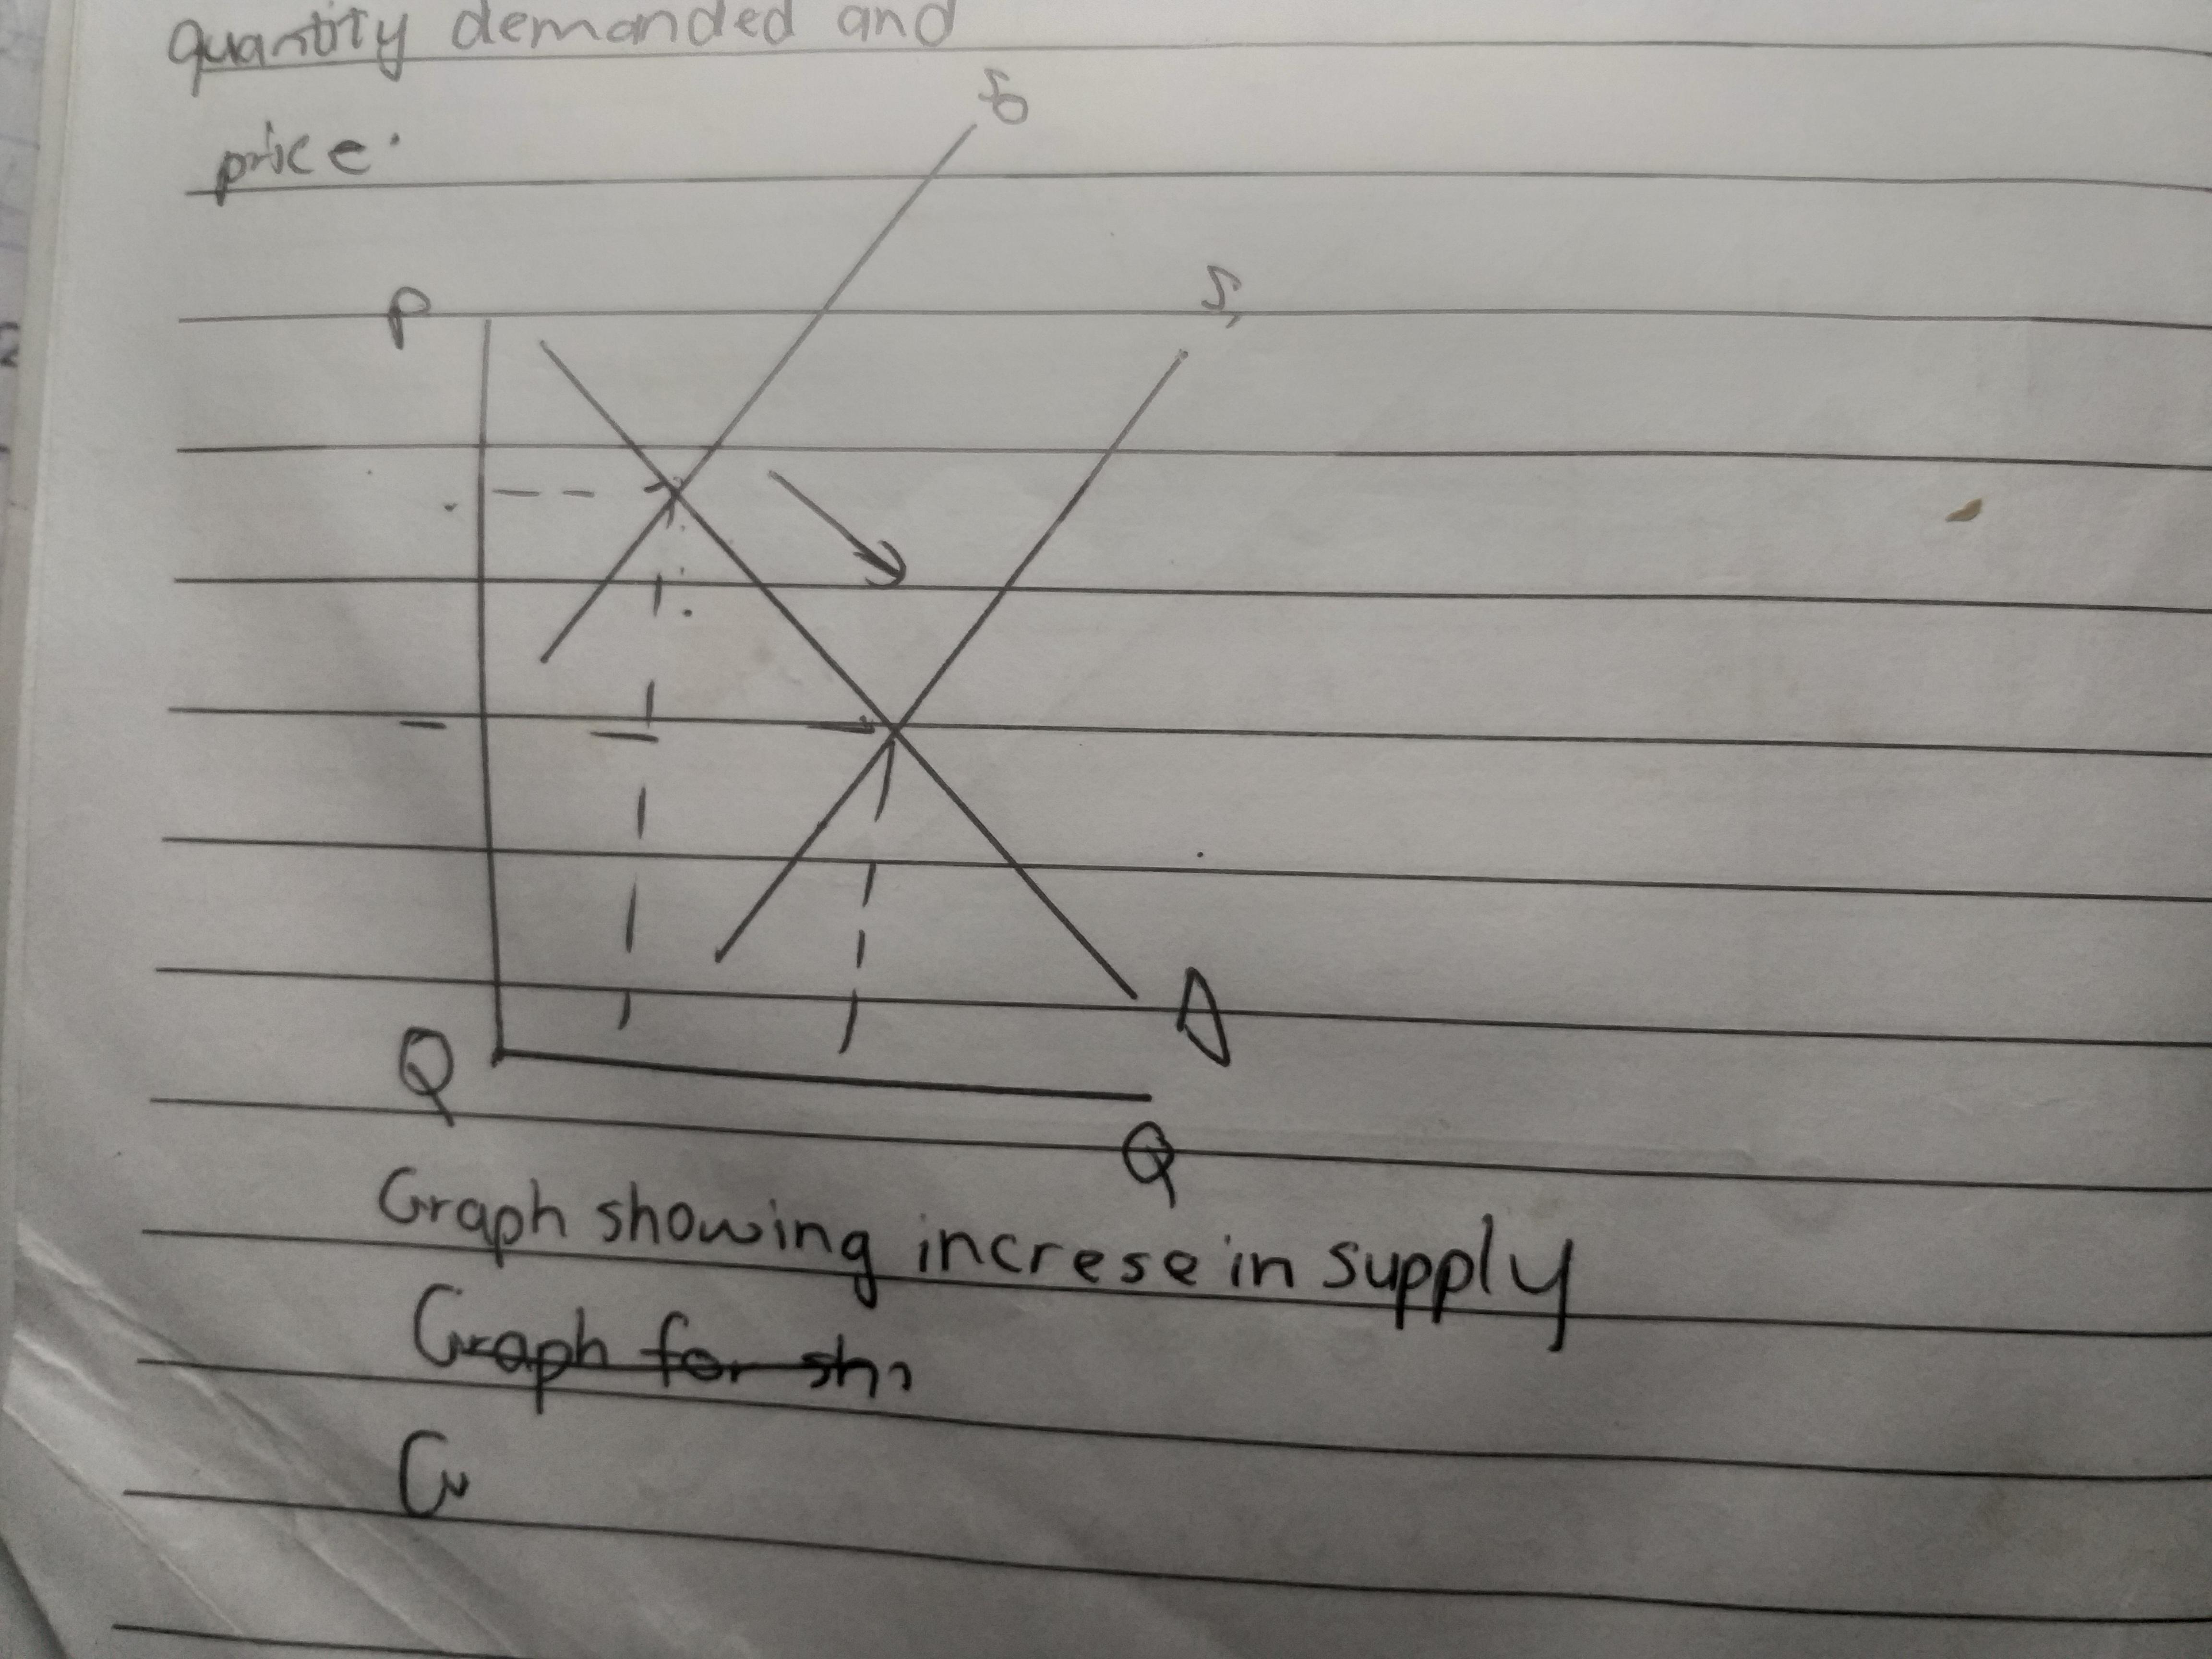 quantity demanded and
price.
S0
P
S1
D
Q
Q
Graph showing increse in supply
Graph for sh
Gr